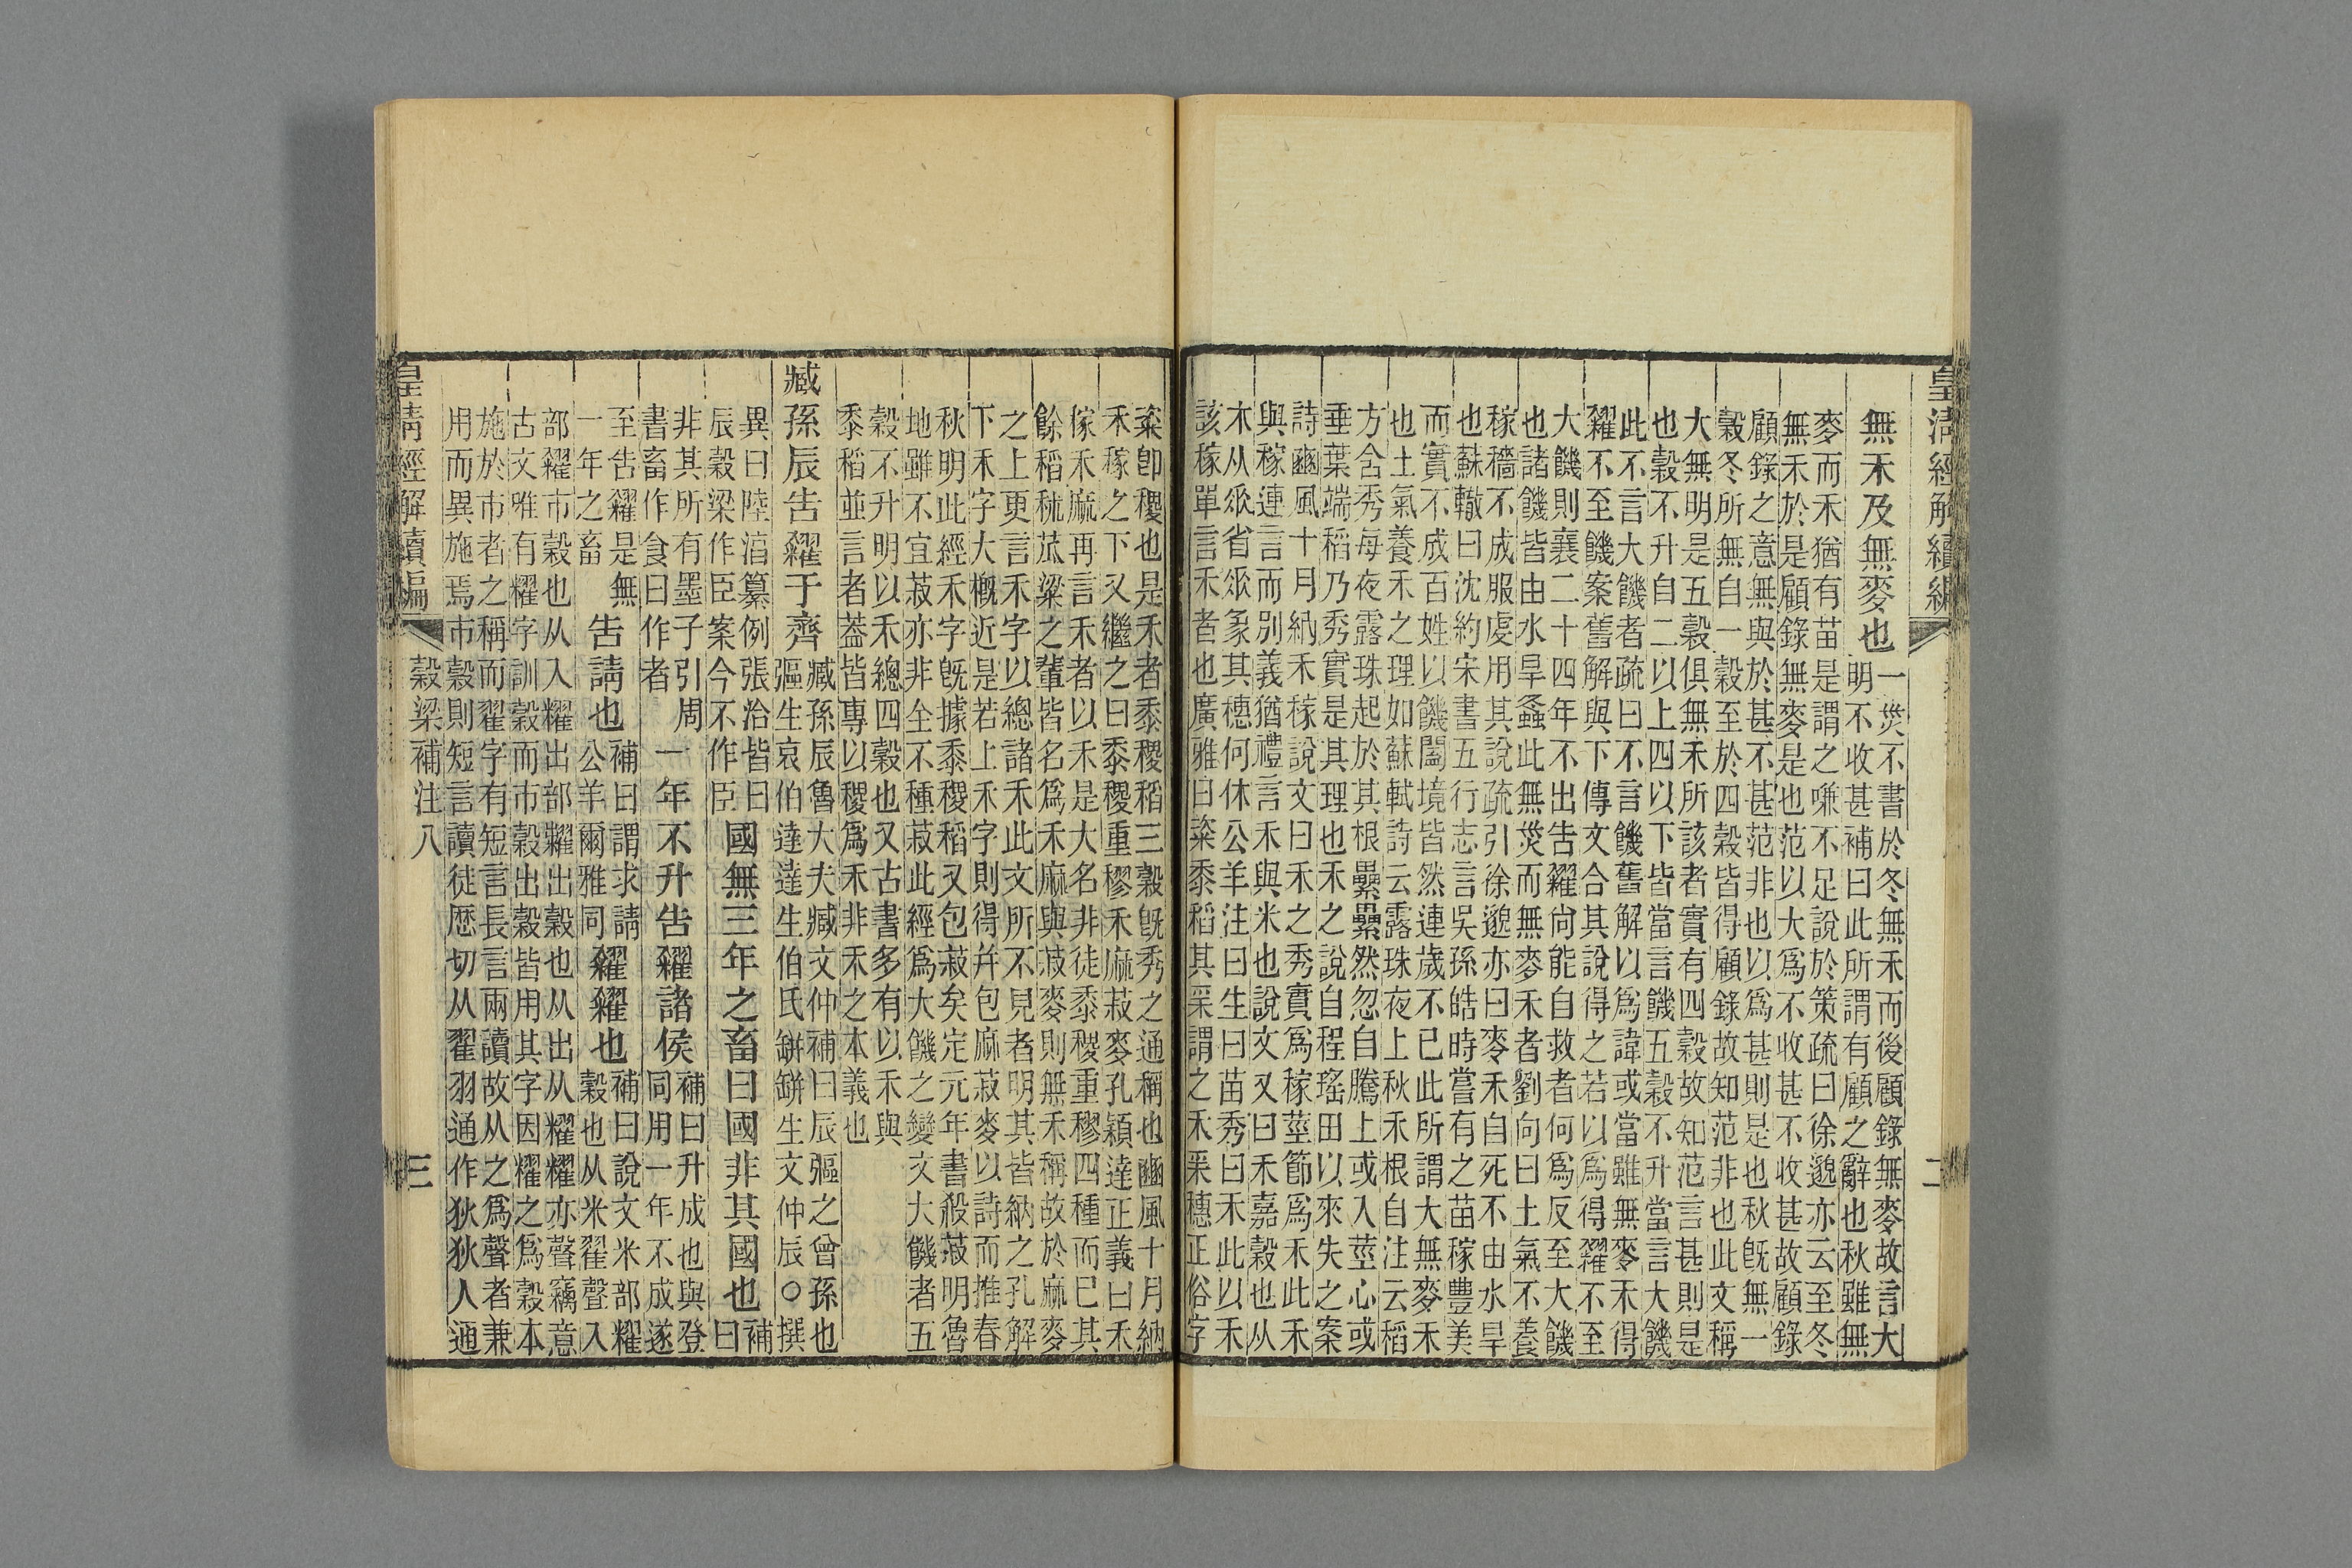 皇清經解續編
二
無禾及無麥也
一災不書於冬無禾而後顧錄無麥故言大
明不收甚補曰此所謂有顧之辭也秋雖無
麥而禾猶有苗是謂之嗛不足說於策疏曰徐邈亦云至冬
無禾於是顧錄無麥是也范以大爲不收甚不收甚故顧錄
顧錄之意無與於甚不甚范非也以爲甚則是也秋旣無一
穀冬所無自一穀至於四穀皆得顧錄故知范非也此文稱
大無明是五穀俱無禾所該者實有四穀故知范言甚則是
也穀不升自二以上四以下皆當言饑五穀不升當言大饑
此不言大饑者疏曰不言饑舊解以爲諱或當雖無麥禾得
糴不至饑案舊解與下傳文合其說得之若以爲得糴不至
大饑則襄二十四年不出告糴尙能自救者何爲反至大饑
也諸饑皆由水旱螽此無災而無麥禾者劉向曰土氣不養
稼穡不成服虔用其說疏引徐邈亦曰麥禾自死不由水旱
也蘇轍曰沈約宋書五行志言吳孫皓時嘗有之苗稼豐美
而實不成百姓以饑闔境皆然連歲不已此所謂大無麥禾
也土氣養禾之理如蘇軾詩云露珠夜上秋禾根自注云稻
方含秀每夜露珠起於其根纍纍然忽自騰上或入莖心或
垂葉端稻乃秀實是其理也禾之說自程瑤田以來失之案
詩豳風十月納禾稼說文曰禾之秀實爲稼莖節爲禾此禾
與稼連言而別義猶禮言禾與米也說文又曰禾嘉穀也从
木从𠂹省𠂹象其穗何休公羊注曰生曰苗秀曰禾此以禾
該稼單言禾者也廣雅曰粢黍稻其采謂之禾采穗正俗字
粢卽稷也是禾者黍稷稻三穀旣秀之通稱也豳風十月納
禾稼之下又繼之曰黍稷重穋禾麻菽麥孔穎達正義曰禾
稼禾麻再言禾者以禾是大名非徒黍稷重穋四種而已其
餘稻秫苽粱之輩皆名爲禾麻與菽麥則無禾稱故於麻麥
之上更言禾字以總諸禾此文所不見者明其皆納之孔解
下禾字大槪近是若上禾字則得幷包麻菽麥以詩而推春
秋明此經禾字旣據黍稷稻又包菽矣定元年書殺菽明魯
地雖不宜菽亦非全不種菽此經爲大饑之變文大饑者五
穀不升明以禾總四穀也又古書多有以禾與
黍稻並言者葢皆專以稷爲禾非禾之本義也
臧孫辰告糴于齊
臧孫辰魯大夫臧文仲補曰辰彄之曾孫也
彄生哀伯達達生伯氏缾缾生文仲辰○撰
異曰陸湻纂例張洽皆曰
辰穀梁作臣案今不作臣
國無三年之畜曰國非其國也
補
曰
非其所有墨子引周
書畜作食曰作者
一年不升告糴諸侯
補曰升成也與登
同用一年不成遂
至告糴是無
一年之畜
告請也
補曰謂求請
公羊爾雅同
糴糴也
補曰說文米部糴
穀也从米翟聲入
部糴市穀也从入䊮出部糶出穀也从出从䊮䊮亦聲竊意
古文唯有䊮字訓穀而市穀出穀皆用其字因䊮之爲穀本
施於市者之稱而翟字有短言長言兩讀故从之爲聲者兼
用而異施焉市穀則短言讀徒歷切从翟羽通作狄狄人通
皇清經解續編
穀梁補注八
三